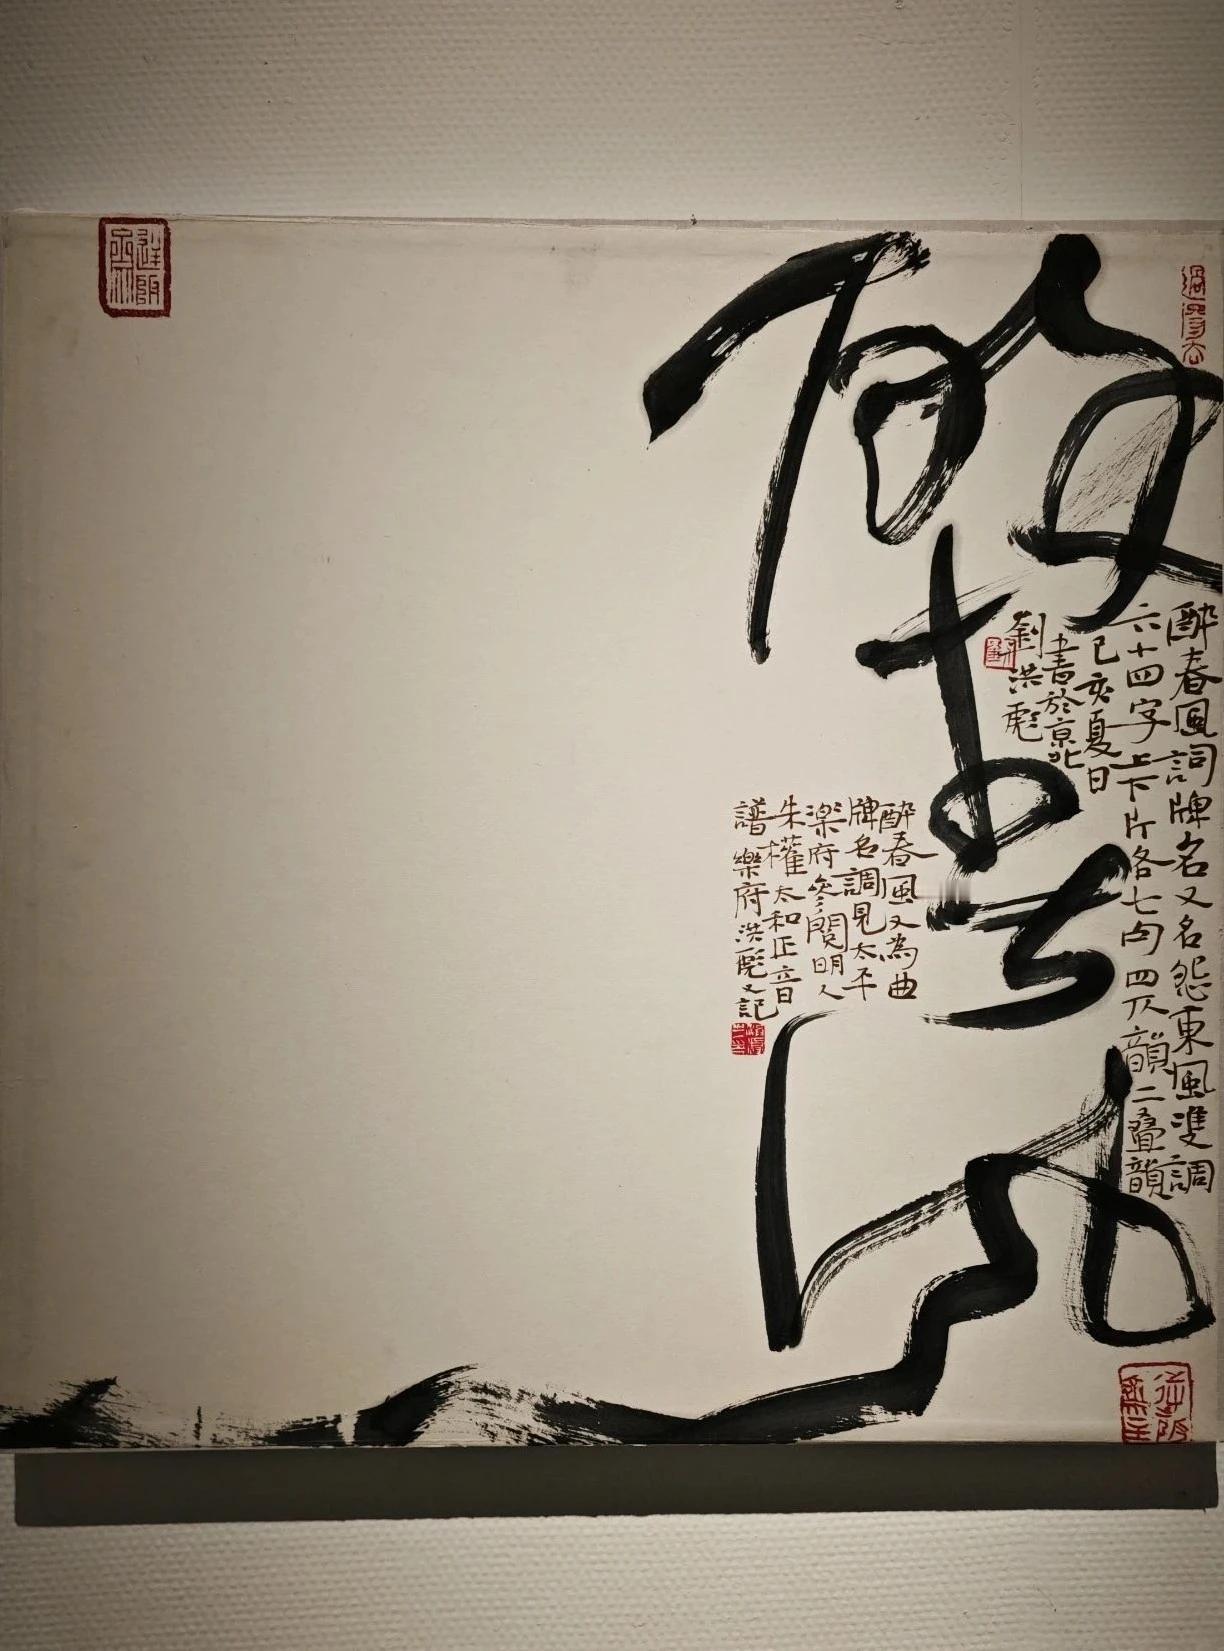 醉春風
醉春風詞牌名又名怨東風雙調
六十四字上下片各七句四仄韻二叠韻
己亥夏日
書於京北
劉洪彪
醉春風又為曲
牌名調見太平
楽府參閱明人
朱權太和正音
譜樂府洪彪又記